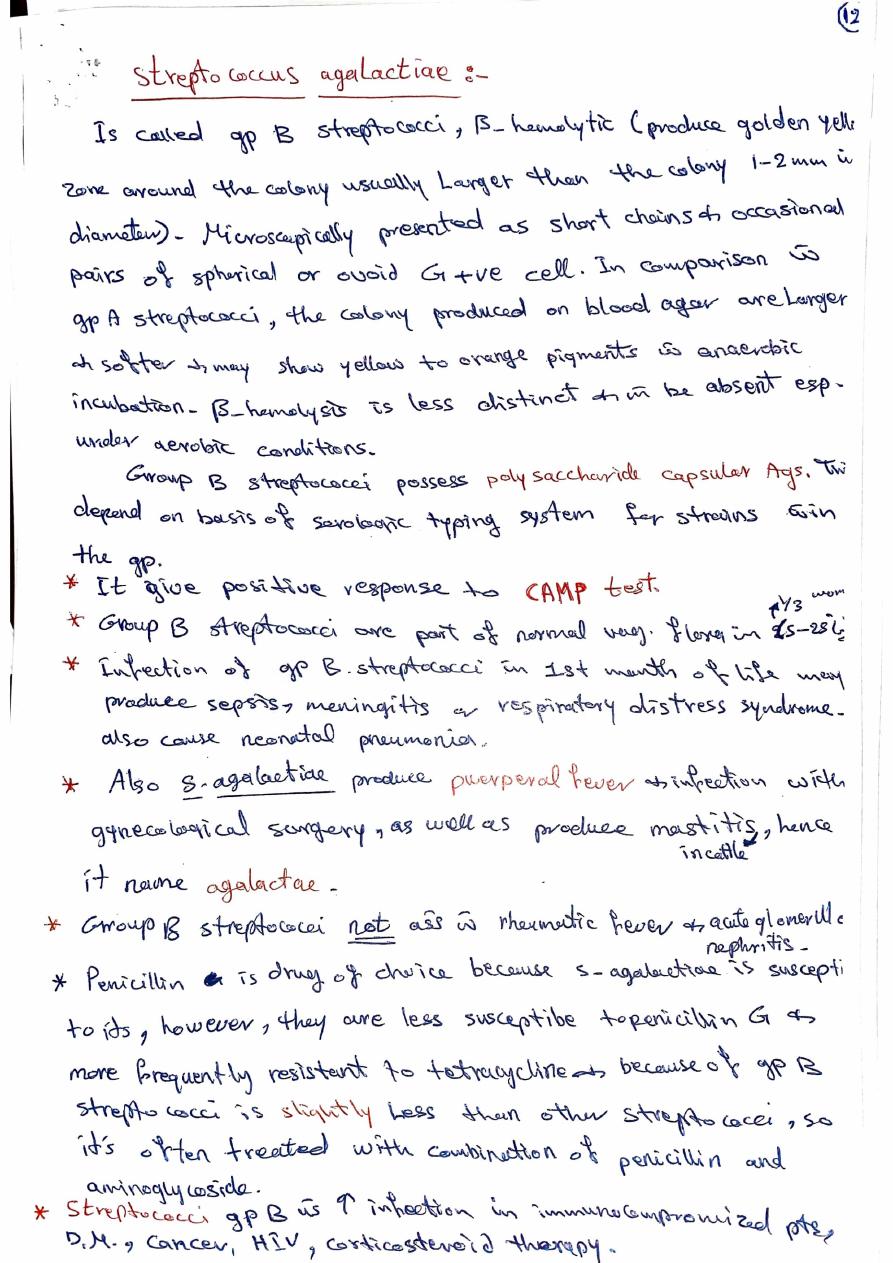 12
Streptococcus agalactiae :-
Is called gp B streptococci, β-hemolytic (produce golden
zone around the colony usually Larger than the colony 1-2 mm in
diameter)- Microscopically presented as short chains & occasional
pairs of spherical or ovoid G +ve cell. In comparison
gp A streptococci, the colony produced on blood agar are Larger
& softer & may show yellow to orange pigments anaerobic
incubation- β-hemolysis is less distinct & be absent esp.
under aerobic conditions.
Group B streptococci possess polysaccharide capsular Ags.
depend on basis of serologic typing system for strains
the gp.
* It give positive response to CAMP test.
1/3 wom
* Group B streptococci are part of normal vag. flora in
* Infection of gp B. streptococci in 1st month of life may
produce sepsis, meningitis or respiratory distress syndrome.
also cause neonatal pneumonia.
* Also S. agalactiae produce puerperal fever & infection with
gynecological surgery, as well as produce mastitis, hence
in cattle
it name agalactae -
* Group B streptococci not ass rheumatic fever & acute
nephritis -
* Penicillin is drug of choice because s-agalactiae is suscepti
to its, however, they are less susceptibe to penicillin G &
more frequently resistant to tetracycline & because of gp B
streptococci is slightly Less than other streptococci, so
it's often treated with combination of penicillin and
aminoglycoside.
* Streptococci gp B is ↑ infection in immunocompromized pts,
D.M., cancer, HIV, corticosteroid therapy.